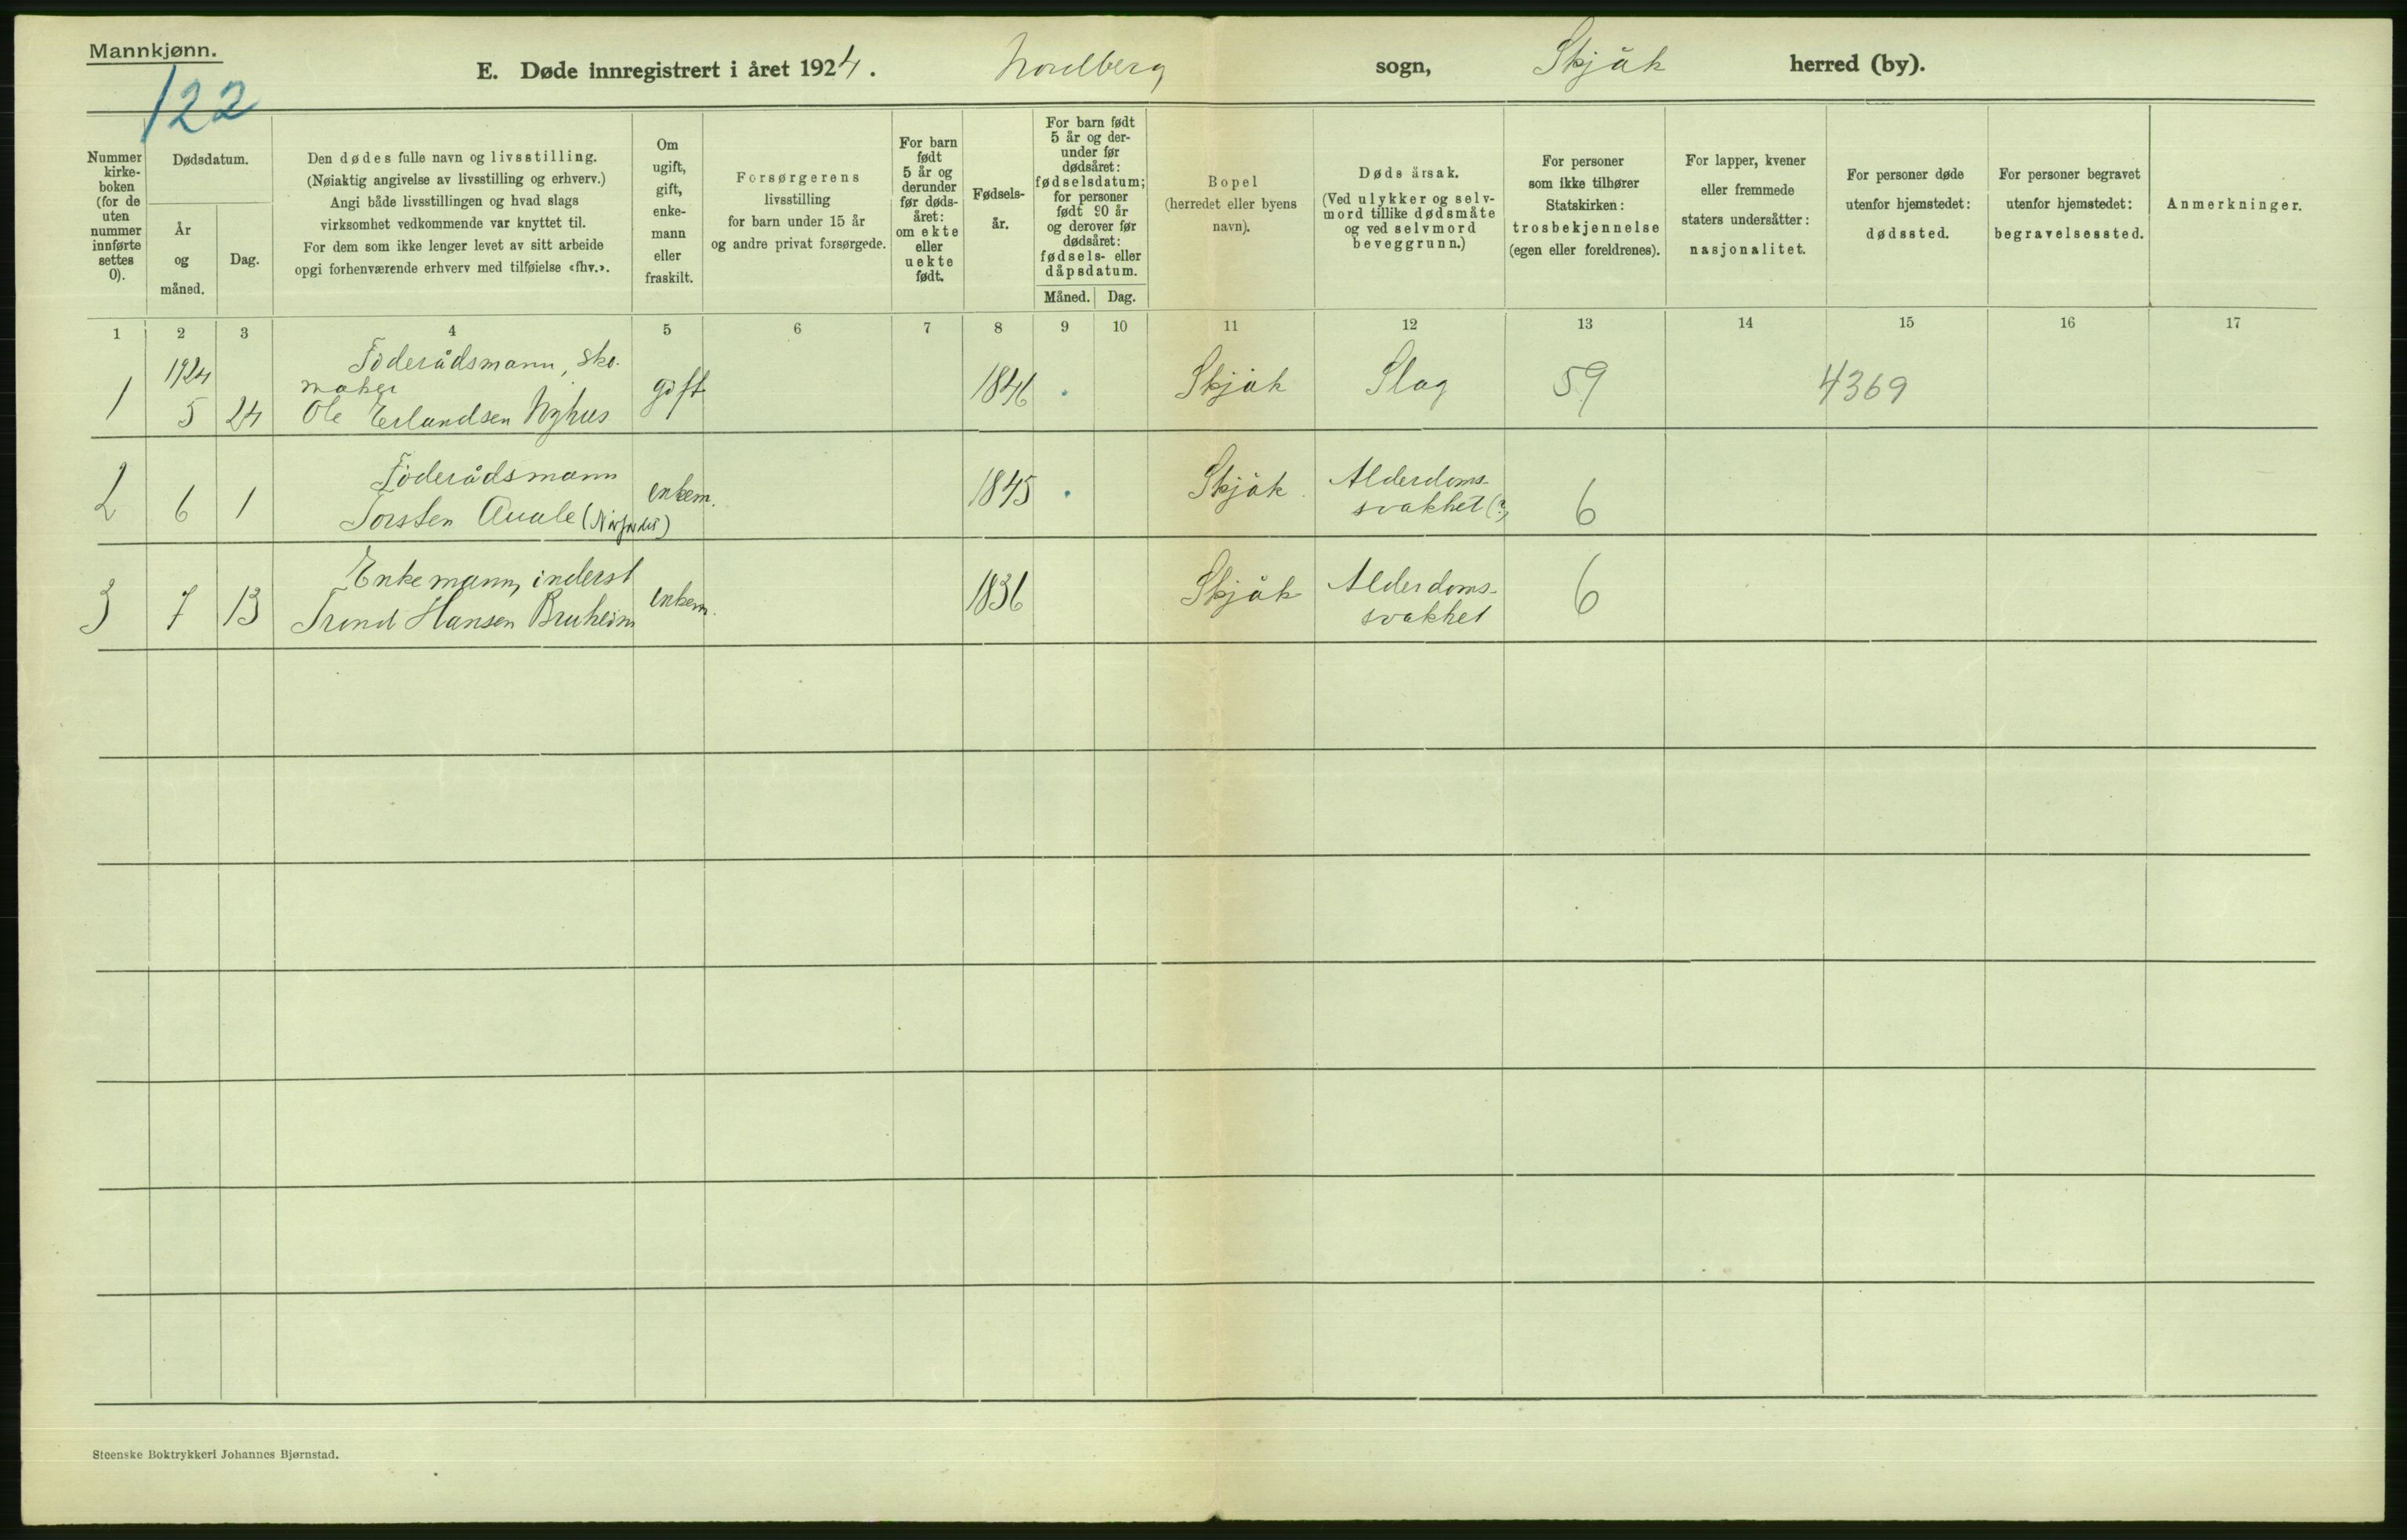 Mannkjønn.
122
E. Døde innregistrert i året 1924. Nordberg sogn, Skjåk herred (by).
Nummer kirke-boken (for de uten nummer innførte settes 0).
Dødsdatum.
År og måned.
Dag.
Den dødes fulle navn og livsstilling.
(Nøiaktig angivelse av livsstilling og erhverv.)
Angi både livsstillingen og hvad slags
virksomhet vedkommende var knyttet til.
For dem som ikke lenger levet av sitt arbeide
opgi forhenværende erhverv med tilføielse «fhv.».
Om ugift, gift, enke-mann eller fraskilt.
Forsørgerens
livsstilling
for barn under 15 år
og andre privat forsørgede.
For barn født 5 år og derunder før døds-året: om ekte eller uekte født.
Fødsels-år.
For barn født 5 år og der-under før dødsåret: fødselsdatum; for personer født 90 år og derover før dødsåret: fødsels- eller dåpsdatum.
Måned. Dag.
Bopel
(herredet eller byens navn).
Dødsårsak.
(Ved ulykker og selv-mord tillike dødsmåte og ved selvmord beveggrunn.)
For personer som ikke tilhører Statskirken: trosbekjennelse (egen eller foreldrenes).
For lapper, kvener eller fremmede staters undersåtter: nasjonalitet.
For personer døde utenfor hjemstedet: dødssted.
For personer begravet utenfor hjemstedet: begravelsessted.
Anmerkninger.
1 2 3 4 5 6 7 8 9 10 11 12 13 14 15 16 17
1924 Föderådsmann, sko-
maker
1 5 24 Ole Erlandsen Nyhus gift 1846 Skjåk Slag 59 4369
Föderådsmann
2 6 1 Torsten Auale enkem. 1845 Skjåk Alderdoms-
svakhet (?) 6
Enkemann, inderst
3 7 13 Trond Hansen Bruheim enkem. 1836 Skjåk Alderdoms-
svakhet 6
Steenske Boktrykkeri Johannes Bjørnstad.